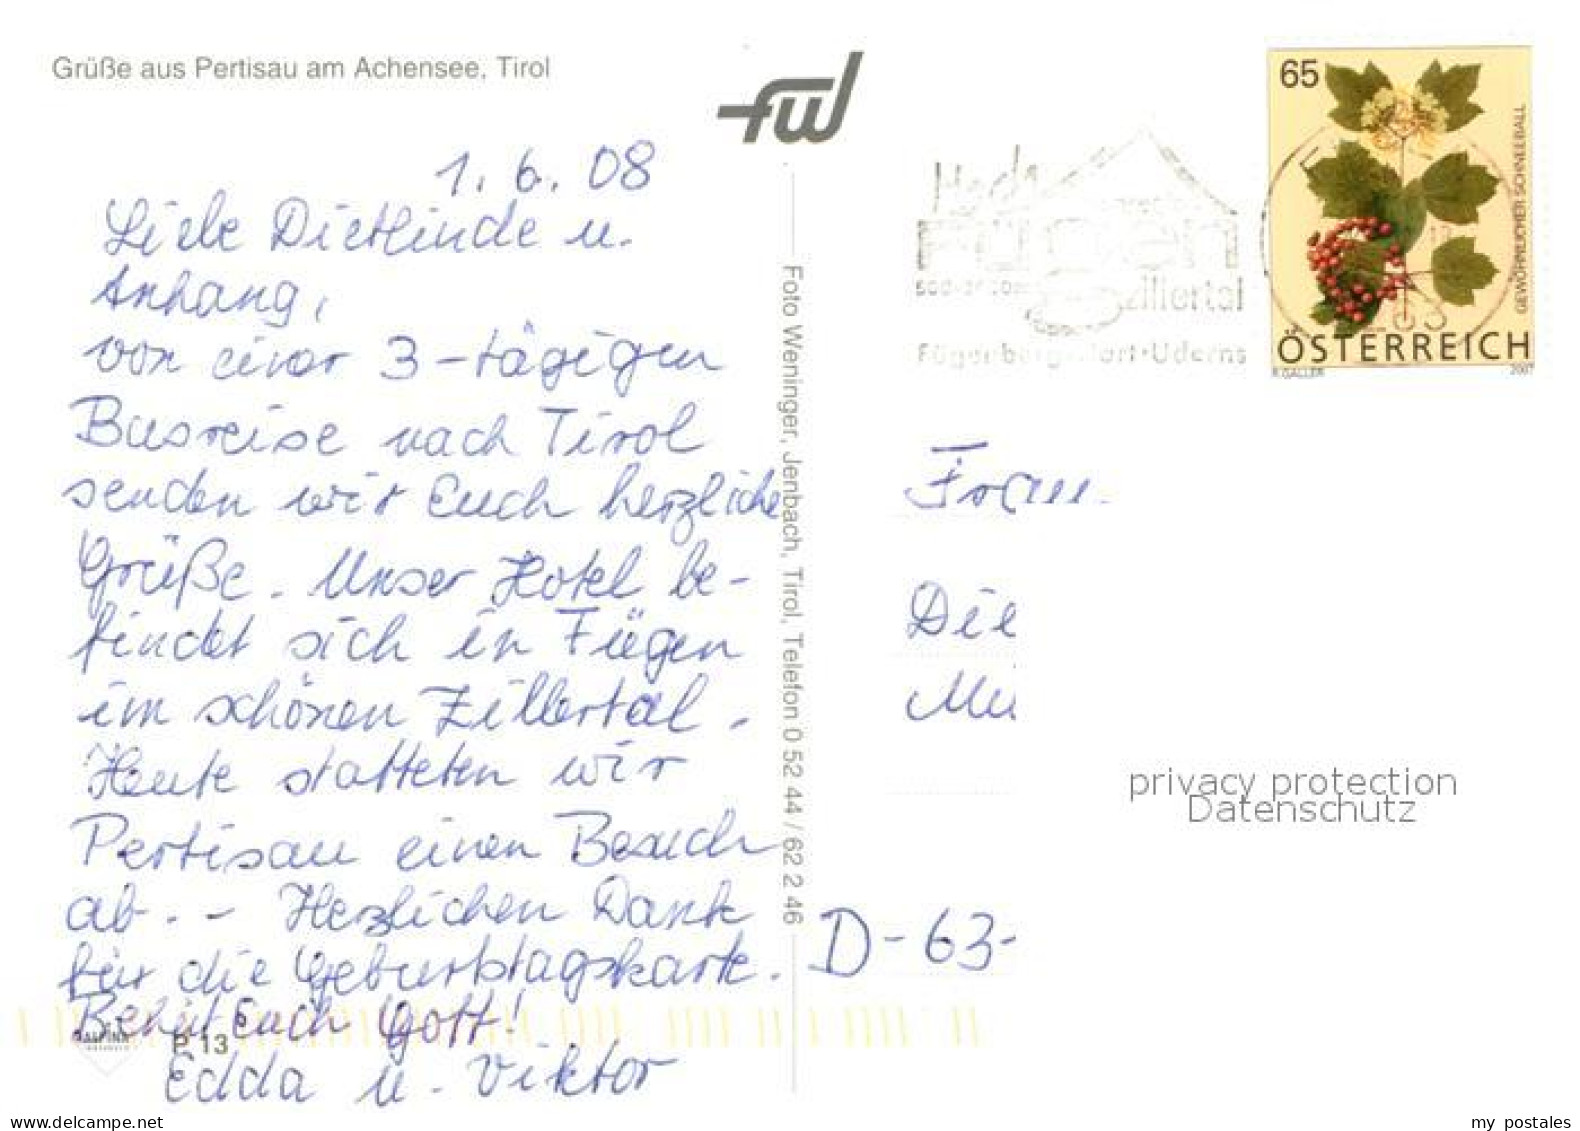 Grüße aus Pertisau am Achensee, Tirol
fwj
1. 6. 08
Liebe Dietlinde u.
Anhang,
von einer 3-tägigen
Busreise nach Tirol
senden wir Euch herzliche
Grüße. Unser Hotel be-
findet sich in Fügen
im schönen Zillertal.
Heute statteten wir
Pertisau einen Besuch
ab. - Herzlichen Dank
für die Geburtstagskarte.
Behüt Euch Gott!
Edda u. Viktor
ALPINA
P 13
Foto Weninger, Jenbach, Tirol, Telefon 0 52 44 / 62 2 46
Fügen
zillertal
Fügenberg Hart·Uderns
65
GEWÖHNLICHER SCHNEEBALL
ÖSTERREICH
R. GALLER 2007
Frau
Die
D-63-
privacy protection
Datenschutz
www.delcampe.net
my postales